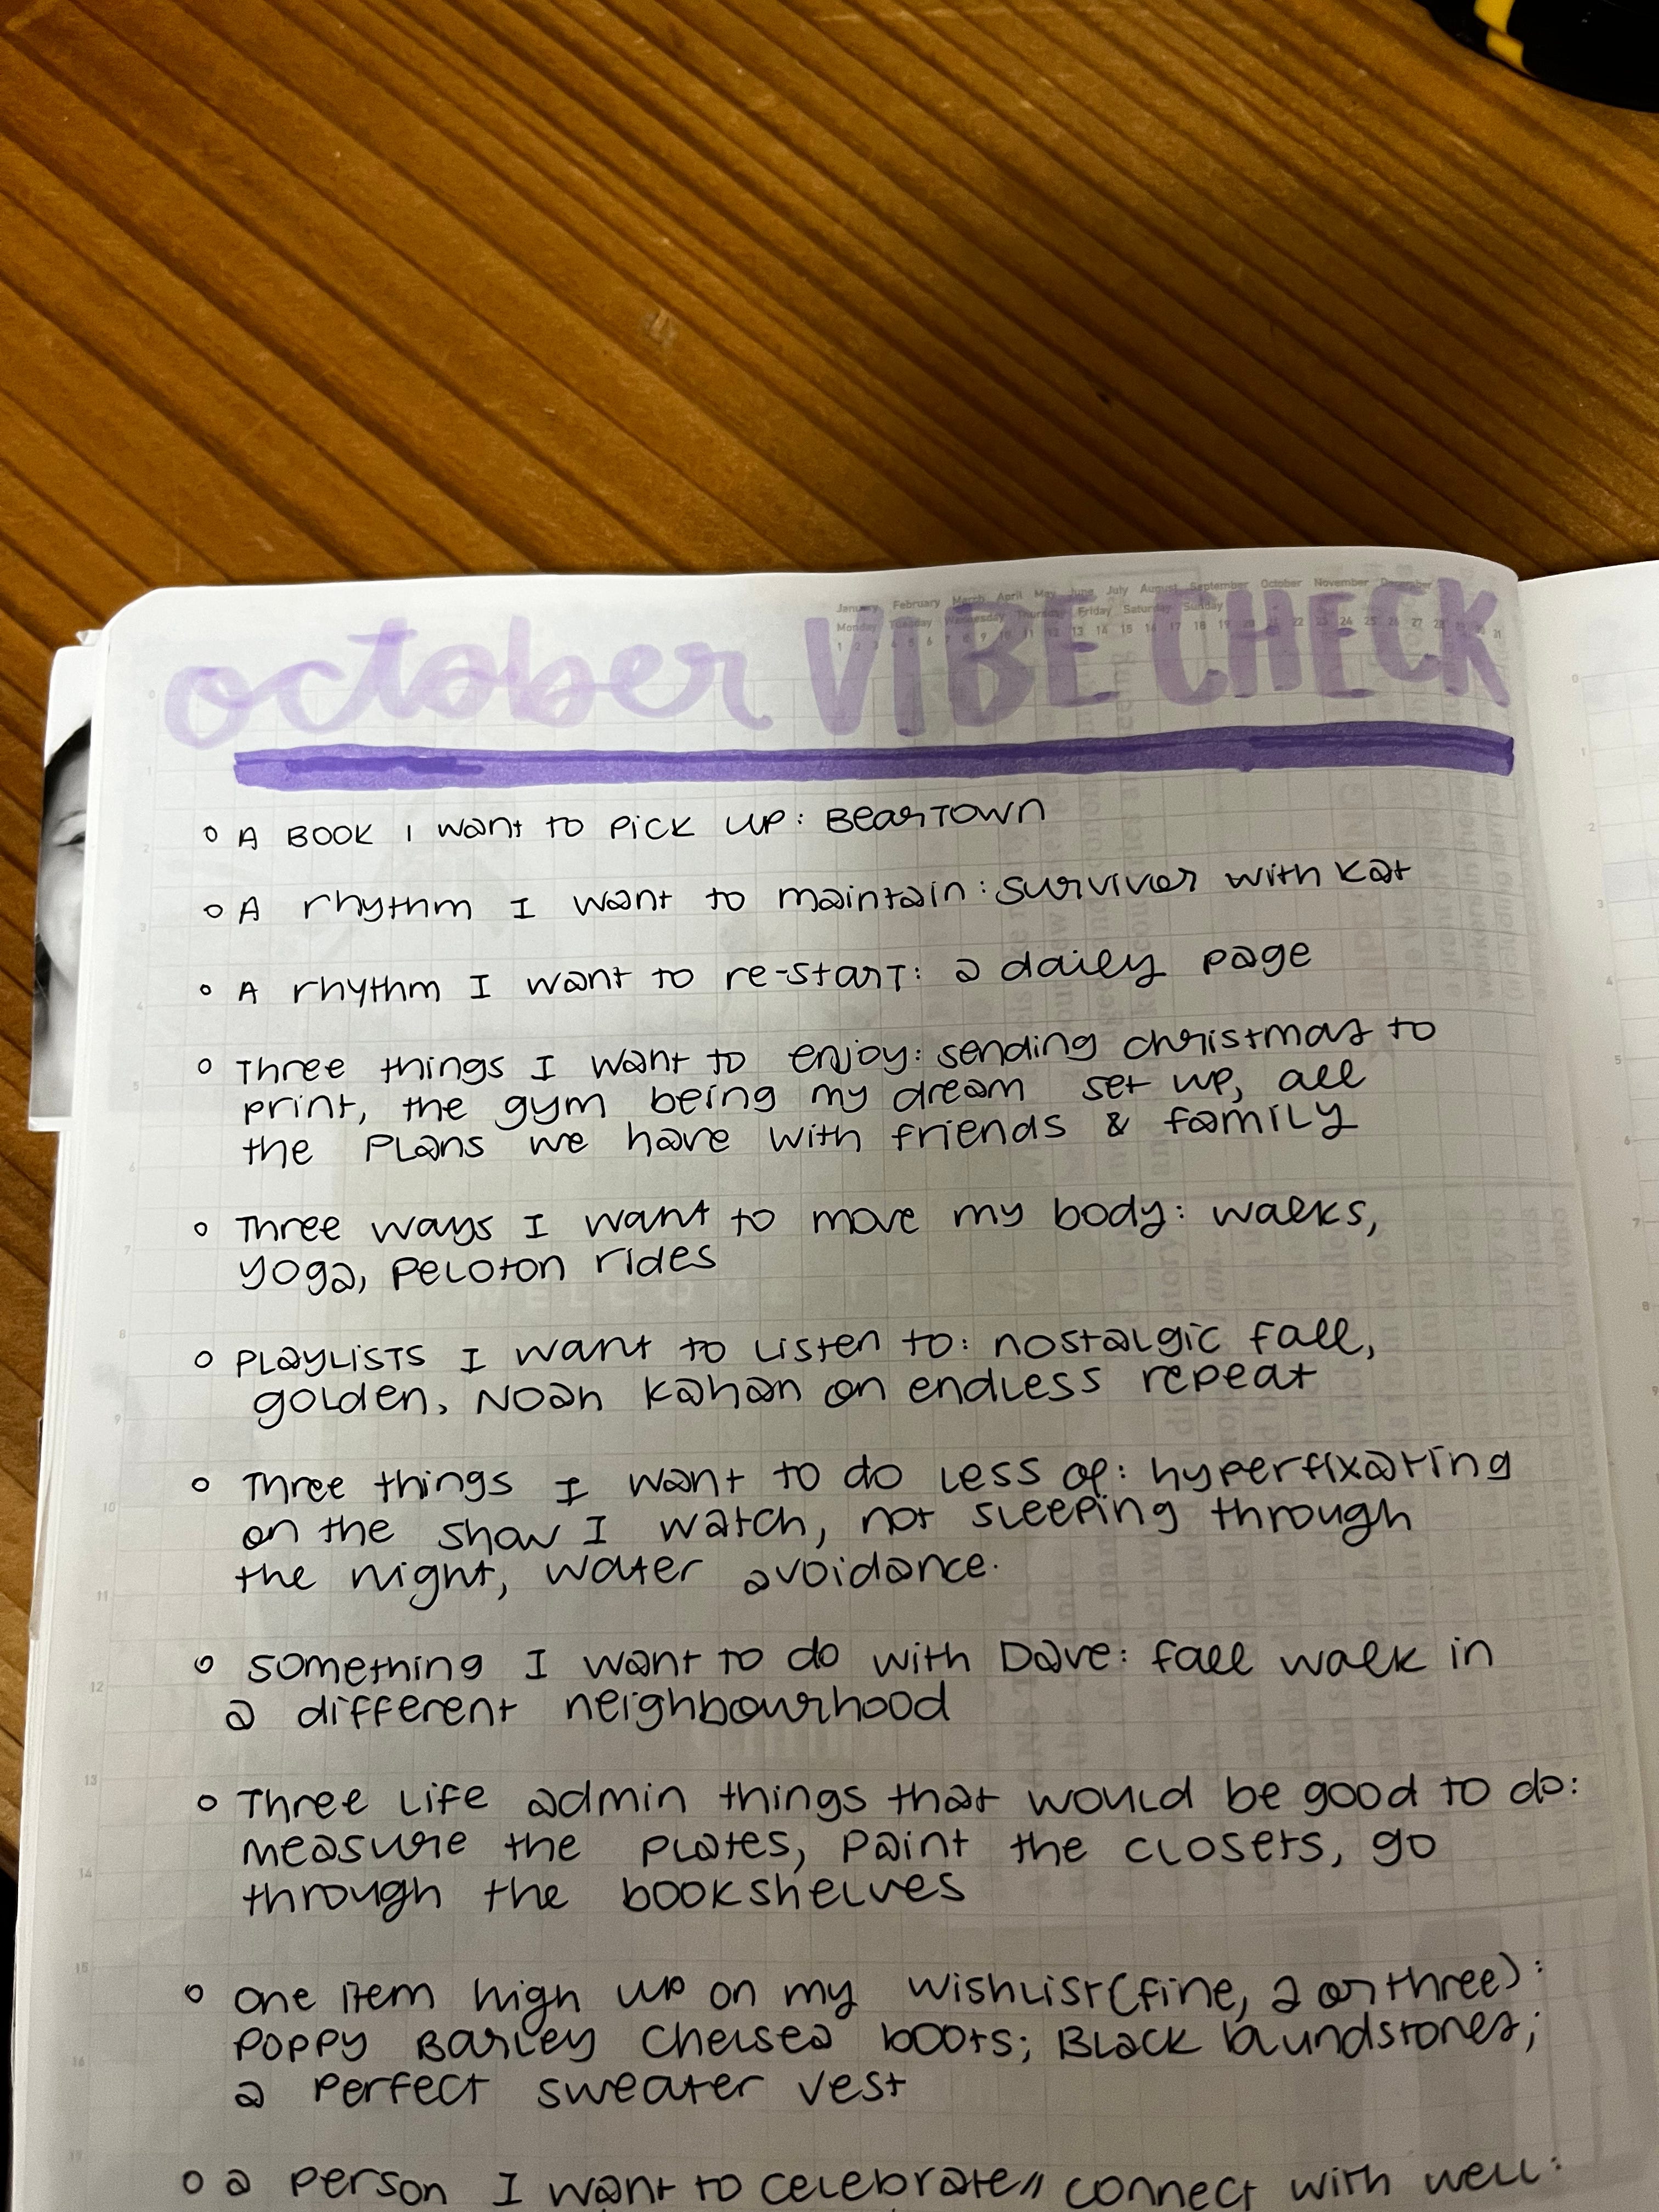 January February March April May June July August September October November December
Monday Tuesday Wednesday Thursday Friday Saturday Sunday
1 2 3 4 5 6 7 8 9 10 11 12 13 14 15 16 17 18 19 20 21 22 23 24 25 26 27 28 29 30 31
october VIBE CHECK
A BOOK I want to pick up: BearTown
A rhythm I want to maintain: survivor with Kat
A rhythm I want to re-start: a daily page
Three things I want to enjoy: sending christmas to
print, the gym being my dream set up, all
the plans we have with friends & family
Three ways I want to move my body: walks,
yoga, peloton rides
Playlists I want to listen to: nostalgic fall,
golden, Noah Kahan on endless repeat
Three things I want to do less of: hyperfixating
on the show I watch, not sleeping through
the night, water avoidance.
something I want to do with Dave: fall walk in
a different neighbourhood
Three life admin things that would be good to do:
measure the plates, paint the closets, go
through the bookshelves
one item high up on my wishlist (fine, 2 or three):
Poppy Barley Chelsea boots; Black blundstones;
a perfect sweater vest
a person I want to celebrate // connect with well: